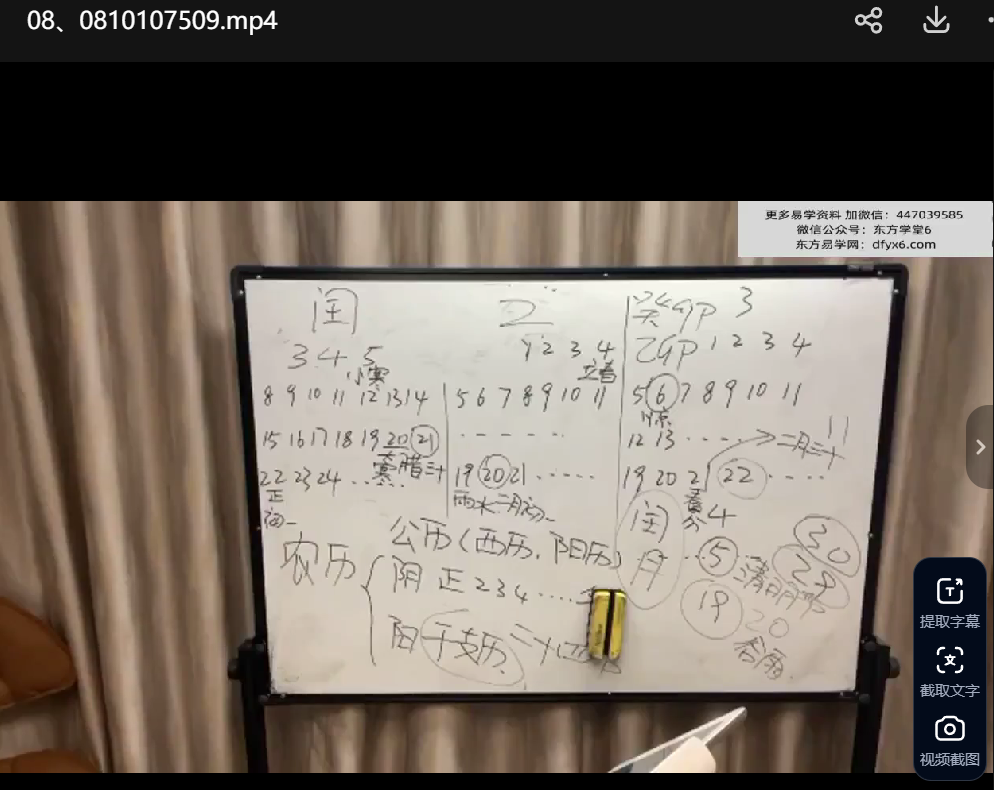 08、0810107509.mp4
更多易学资料 加微信：447039585
微信公众号：东方学堂6
东方易学网：dfyx6.com
闰
3 4 5
小寒
8 9 10 11 12 13 14
15 16 17 18 19 20 21
大寒 腊三十
22 23 24 ......
正
初一
2
1 2 3 4
立春
5 6 7 8 9 10 11
- - - - - -
19 20 21 ......
雨水 二月初一
3
1 2 3 4
5 6 7 8 9 10 11
12 13 ...... 二月三十
19 20 21 22 ....
春分
闰月
4
5 清明节
19 20
谷雨
30
29
农历
公历（西历、阳历）
阴 正 2 3 4 ....
阳 干支历 二十四节
提取字幕
截取文字
视频截图